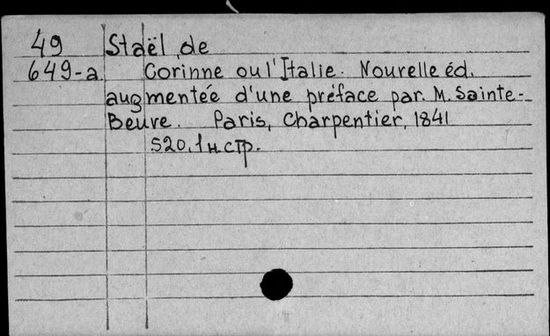 49 Staël, de
649-a Corinne ou l'Italie. Nourelle éd.
augmentée d'une préface par. M. Sainte-
Beuve. Paris, Charpentier, 1841
520, 1 н. стр.